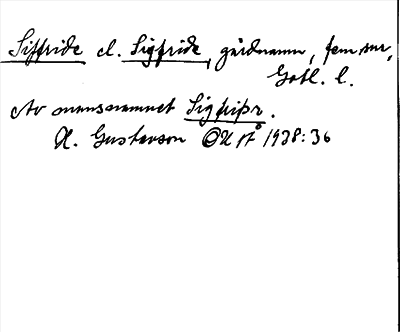 Siffride el. Sigfride, gårdnamn, fem. sur,
Gotl. l.
Av mansnamnet Sigfiþr.
H. Gustavson 1938:36